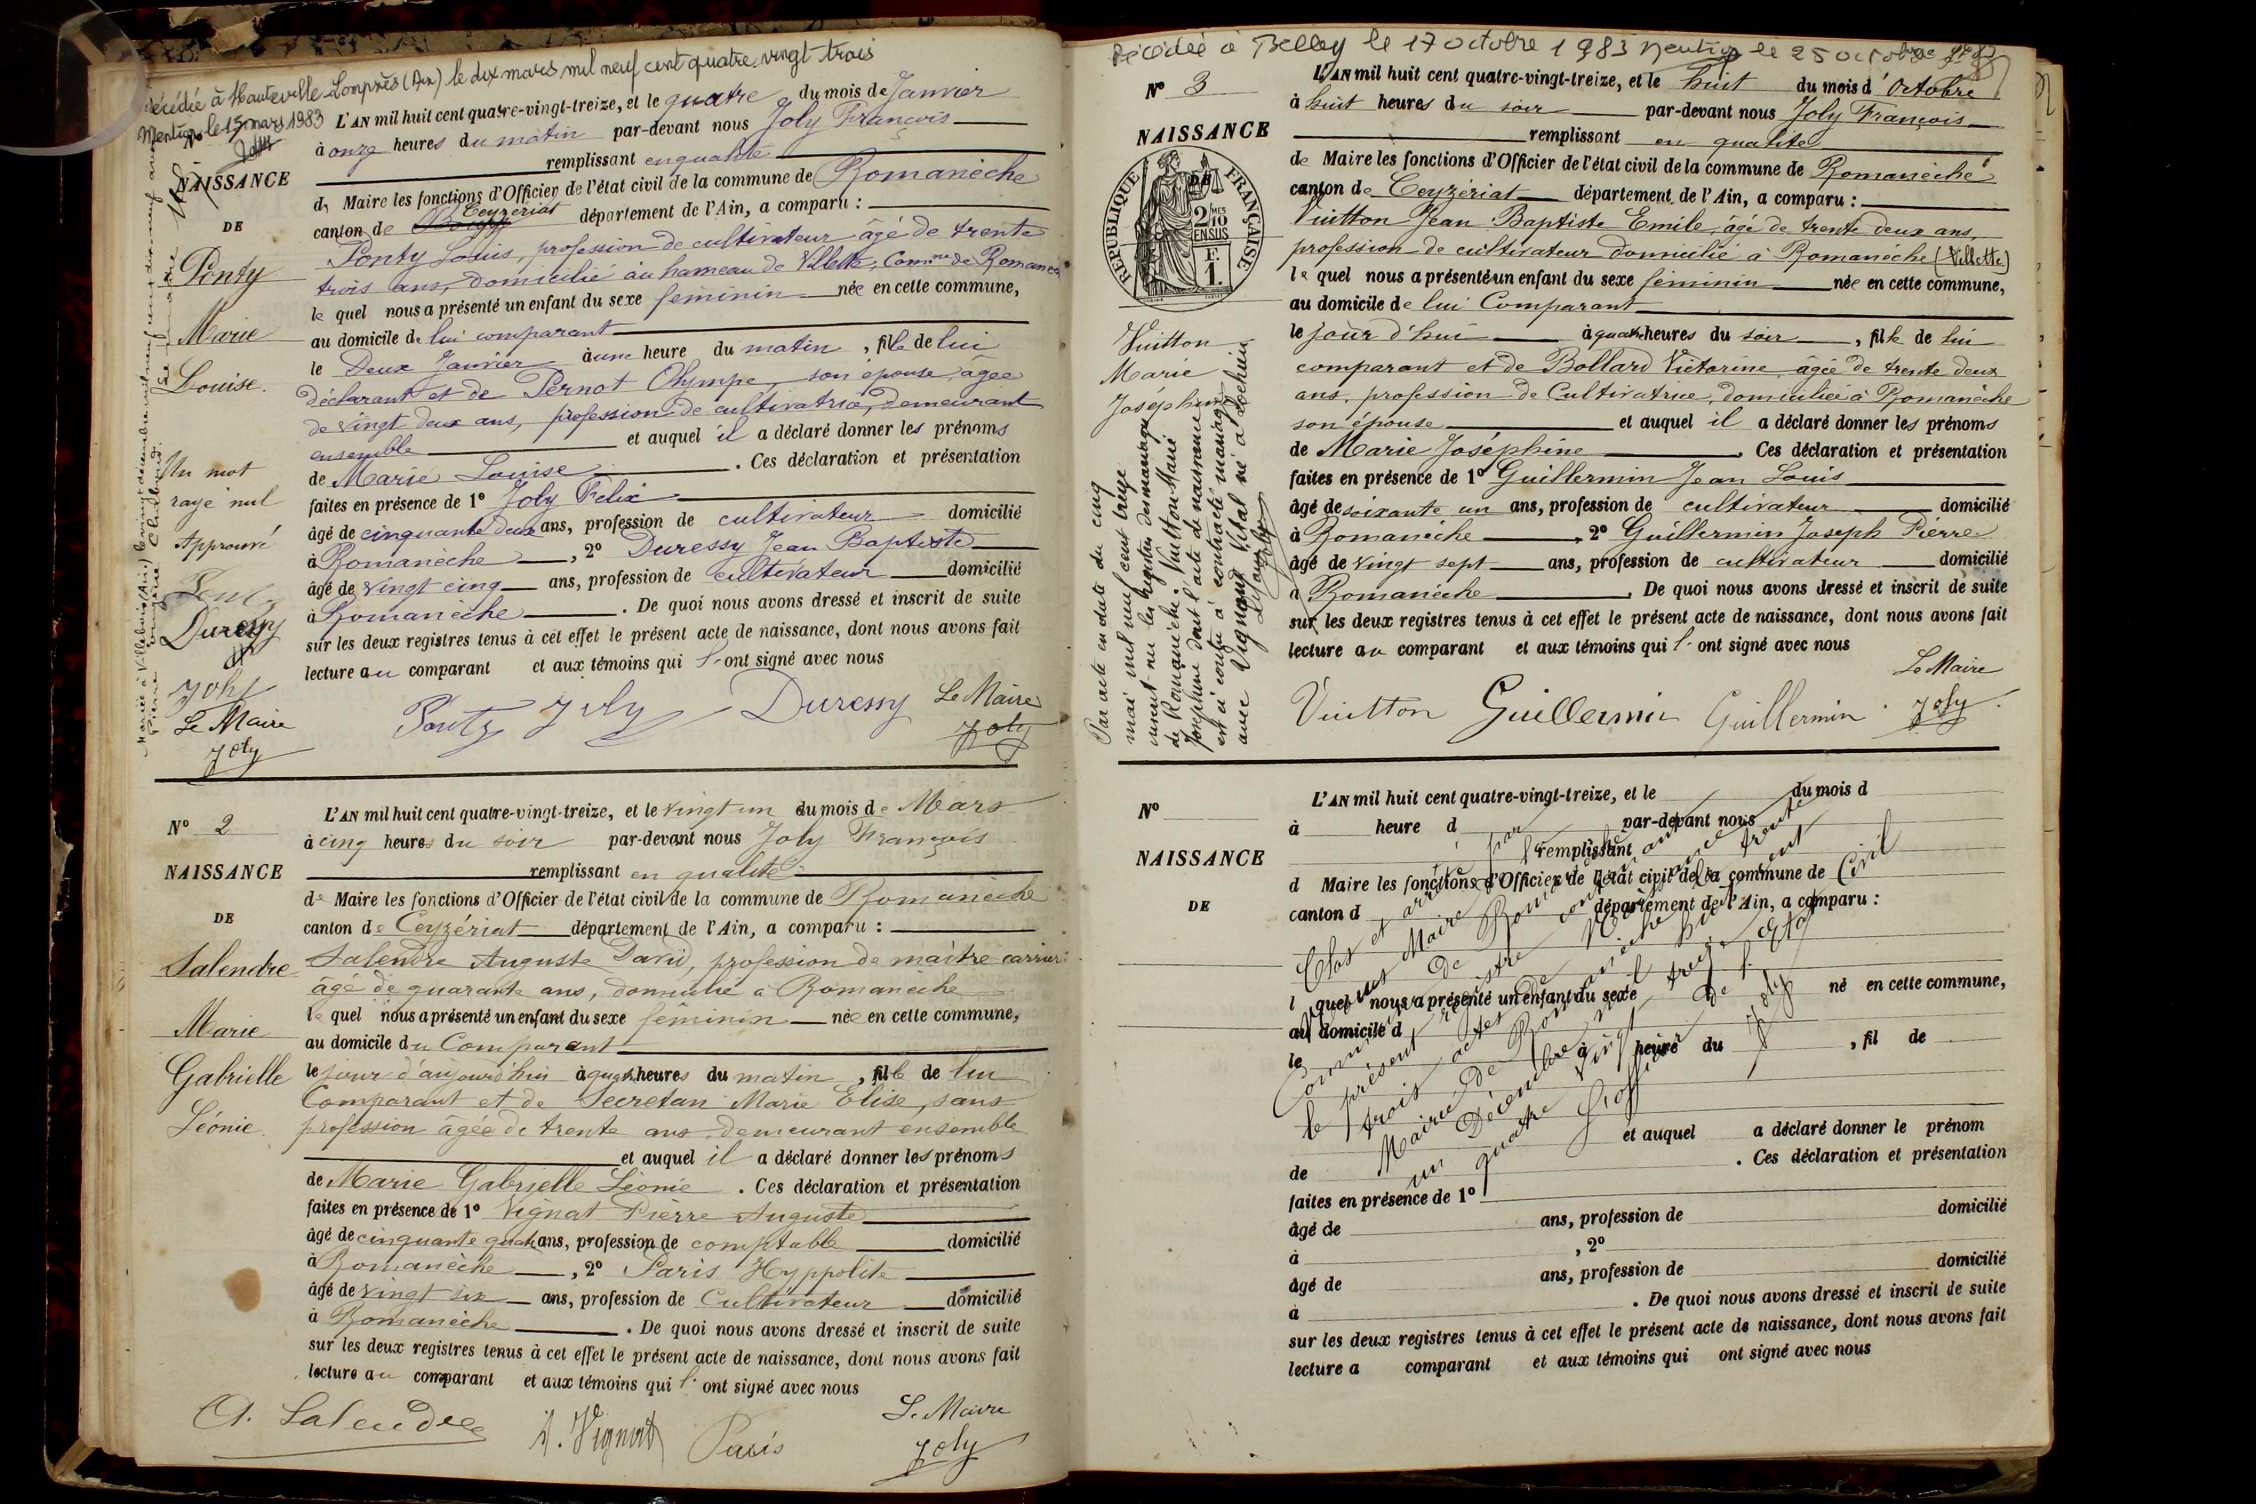 Décédée à Hauteville-Lompnès (Ain) le dix mars mil neuf cent quatre vingt trois
Mention le 15 mars 1983
N°
NAISSANCE
DE
Ponty
Marie
Louise.
Un mot
rayé nul
Approuvé
Duressy
Joly
Le Maire
Joly
L'AN mil huit cent quatre-vingt-treize, et le quatre du mois de Janvier
à onze heures du matin par-devant nous Joly François
remplissant en qualité
de Maire les fonctions d'Officier de l'état civil de la commune de Romanèche
canton de Ceyzériat département de l'Ain, a comparu :
Ponty Louis, profession de cultivateur âgé de trente
trois ans, domicilié au hameau de Villette, Comne de Romanèche
le quel nous a présenté un enfant du sexe féminin née en cette commune,
au domicile de lui comparant
le Deux Janvier à une heure du matin, fille de lui
déclarant et de Pernot Olympe, son épouse, âgée
de vingt deux ans, profession de cultivatrice, demeurant
ensemble et auquel il a déclaré donner les prénoms
de Marie Louise. Ces déclaration et présentation
faites en présence de 1° Joly Félix
âgé de cinquante deux ans, profession de cultivateur domicilié
à Romanèche, 2° Duressy Jean Baptiste
âgé de vingt cinq ans, profession de cultivateur domicilié
à Romanèche. De quoi nous avons dressé et inscrit de suite
sur les deux registres tenus à cet effet le présent acte de naissance, dont nous avons fait
lecture au comparant et aux témoins qui l'ont signé avec nous
Ponty Joly Duressy Le Maire
Joly
N° 2
NAISSANCE
DE
Salendre
Marie
Gabrielle
Léonie.
L'AN mil huit cent quatre-vingt-treize, et le vingt un du mois de Mars
à cinq heures du soir par-devant nous Joly François
remplissant en qualité
de Maire les fonctions d'Officier de l'état civil de la commune de Romanèche
canton de Ceyzériat département de l'Ain, a comparu :
Salendre Auguste David, profession de maître carrier
âgé de quarante ans, domicilié à Romanèche
le quel nous a présenté un enfant du sexe féminin née en cette commune,
au domicile du Comparant
le jour d'aujourd'hui à quatre heures du matin, fille de lui
Comparant et de Secretan Marie Elise, sans
profession âgée de trente ans demeurant ensemble
et auquel il a déclaré donner les prénoms
de Marie Gabrielle Léonie. Ces déclaration et présentation
faites en présence de 1° Vignat Pierre Auguste
âgé de cinquante quatre ans, profession de comptable domicilié
à Romanèche, 2° Paris Hyppolite
âgé de vingt six ans, profession de Cultivateur domicilié
à Romanèche. De quoi nous avons dressé et inscrit de suite
sur les deux registres tenus à cet effet le présent acte de naissance, dont nous avons fait
lecture au comparant et aux témoins qui l'ont signé avec nous
A. Salendre A. Vignat Paris Le Maire
Joly
Décédée à Belley le 17 octobre 1983 Mention le 25 octobre 1983
N° 3
NAISSANCE
DE
RÉPUBLIQUE FRANÇAISE
2/10 MES
EN SUS
F.
1.
Vuitton
Marie
Joséphine
Par acte en date du cinq
mai mil neuf cent treize
inscrit sur les registres des mariages
de Romanèche, Vuitton Marie
Joséphine dont l'acte de naissance
est ci contre a contracté mariage
avec Vignand Vital né à Lochieu
L'AN mil huit cent quatre-vingt-treize, et le huit du mois d'Octobre
à huit heures du soir par-devant nous Joly François
remplissant en qualité
de Maire les fonctions d'Officier de l'état civil de la commune de Romanèche
canton de Ceyzériat département de l'Ain, a comparu :
Vuitton Jean Baptiste Emile, âgé de trente deux ans,
profession de cultivateur domicilié à Romanèche (Villette)
le quel nous a présenté un enfant du sexe féminin née en cette commune,
au domicile de lui Comparant
le jour d'hui à quatre heures du soir, fille de lui
comparant et de Bollard Victorine, âgée de trente deux
ans, profession de Cultivatrice, domiciliée à Romanèche
son épouse et auquel il a déclaré donner les prénoms
de Marie Joséphine. Ces déclaration et présentation
faites en présence de 1° Guillermin Jean Louis
âgé de soixante un ans, profession de cultivateur domicilié
à Romanèche, 2° Guillermin Joseph Pierre
âgé de vingt sept ans, profession de cultivateur domicilié
à Romanèche. De quoi nous avons dressé et inscrit de suite
sur les deux registres tenus à cet effet le présent acte de naissance, dont nous avons fait
lecture au comparant et aux témoins qui l'ont signé avec nous
Le Maire
Vuitton Guillermin Guillermin Joly
N°
NAISSANCE
DE
L'AN mil huit cent quatre-vingt-treize, et le du mois d
à heure d par-devant nous
remplissant
d Maire les fonctions d'Officier de l'état civil de la commune de
canton d département de l'Ain, a comparu :
l quel nous a présenté un enfant du sexe né en cette commune,
au domicile d
le à heure du, fil de
et auquel a déclaré donner le prénom
de. Ces déclaration et présentation
faites en présence de 1°
âgé de ans, profession de domicilié
à, 2°
âgé de ans, profession de domicilié
à. De quoi nous avons dressé et inscrit de suite
sur les deux registres tenus à cet effet le présent acte de naissance, dont nous avons fait
lecture a comparant et aux témoins qui ont signé avec nous
Clos et arrêté par
nous Maire de la
Commune de Romanèche
le présent registre contenant
trois actes de Naissance
Mairie de Romanèche le trente
un Décembre mil huit cent
quatre vingt treize
L'officier de l'Etat Civil
Joly